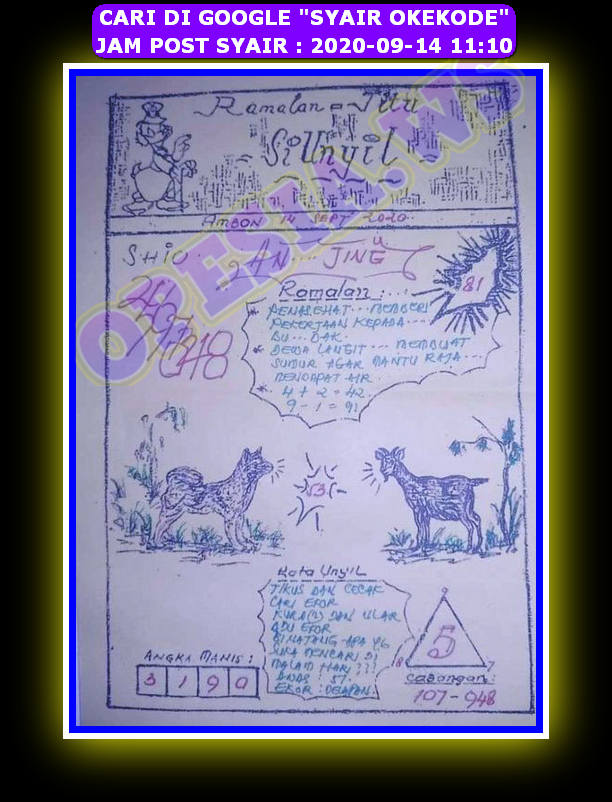 CARI DI GOOGLE "SYAIR OKEKODE"
JAM POST SYAIR : 2020-09-14 11:10
OPESIA.WS
Ramalan = Jitu
- SiUnyil -
AMBON 14 SEPT 2020
SHIO. AN... JING
81
Ramalan:..
* PENASEHAT... MEMBERI
PEKERJAAN KEPADA...
BU... DAK.
* DEWA LANGIT... MEMBUAT
SUMUR AGAR MANTU RAJA...
MENDAPAT AIR.
* 4 + 2 = 42.
9 - 1 = 91
048
53
Kata Unyil
TIKUS DAN CECAK
CARI EKOR
KURA(2) DAN ULAR
ADU EKOR
BINATANG APA YG
SUKA MENCARI DI
MALAM HARI ???
ANAS : 57.
EKOR : DELAPAN
ANGKA MANIS:
3 1 9 0
5
8 7
Cabangan:
107 - 948